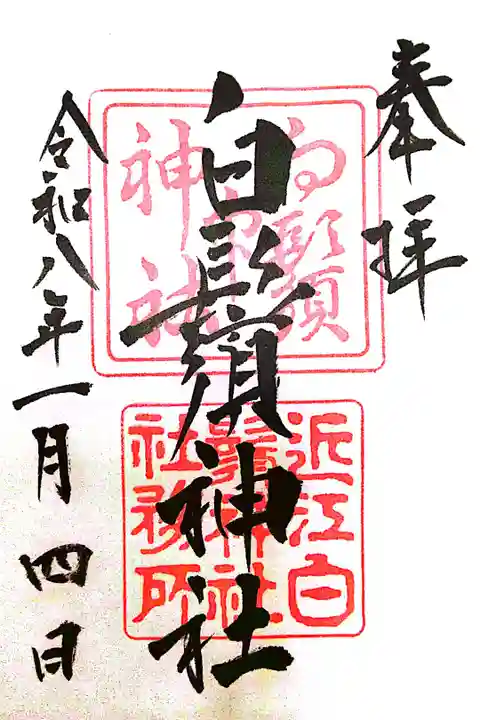 奉拝
白鬚神社
令和八年一月四日
白鬚神社
近江白
鬚神社
社務所